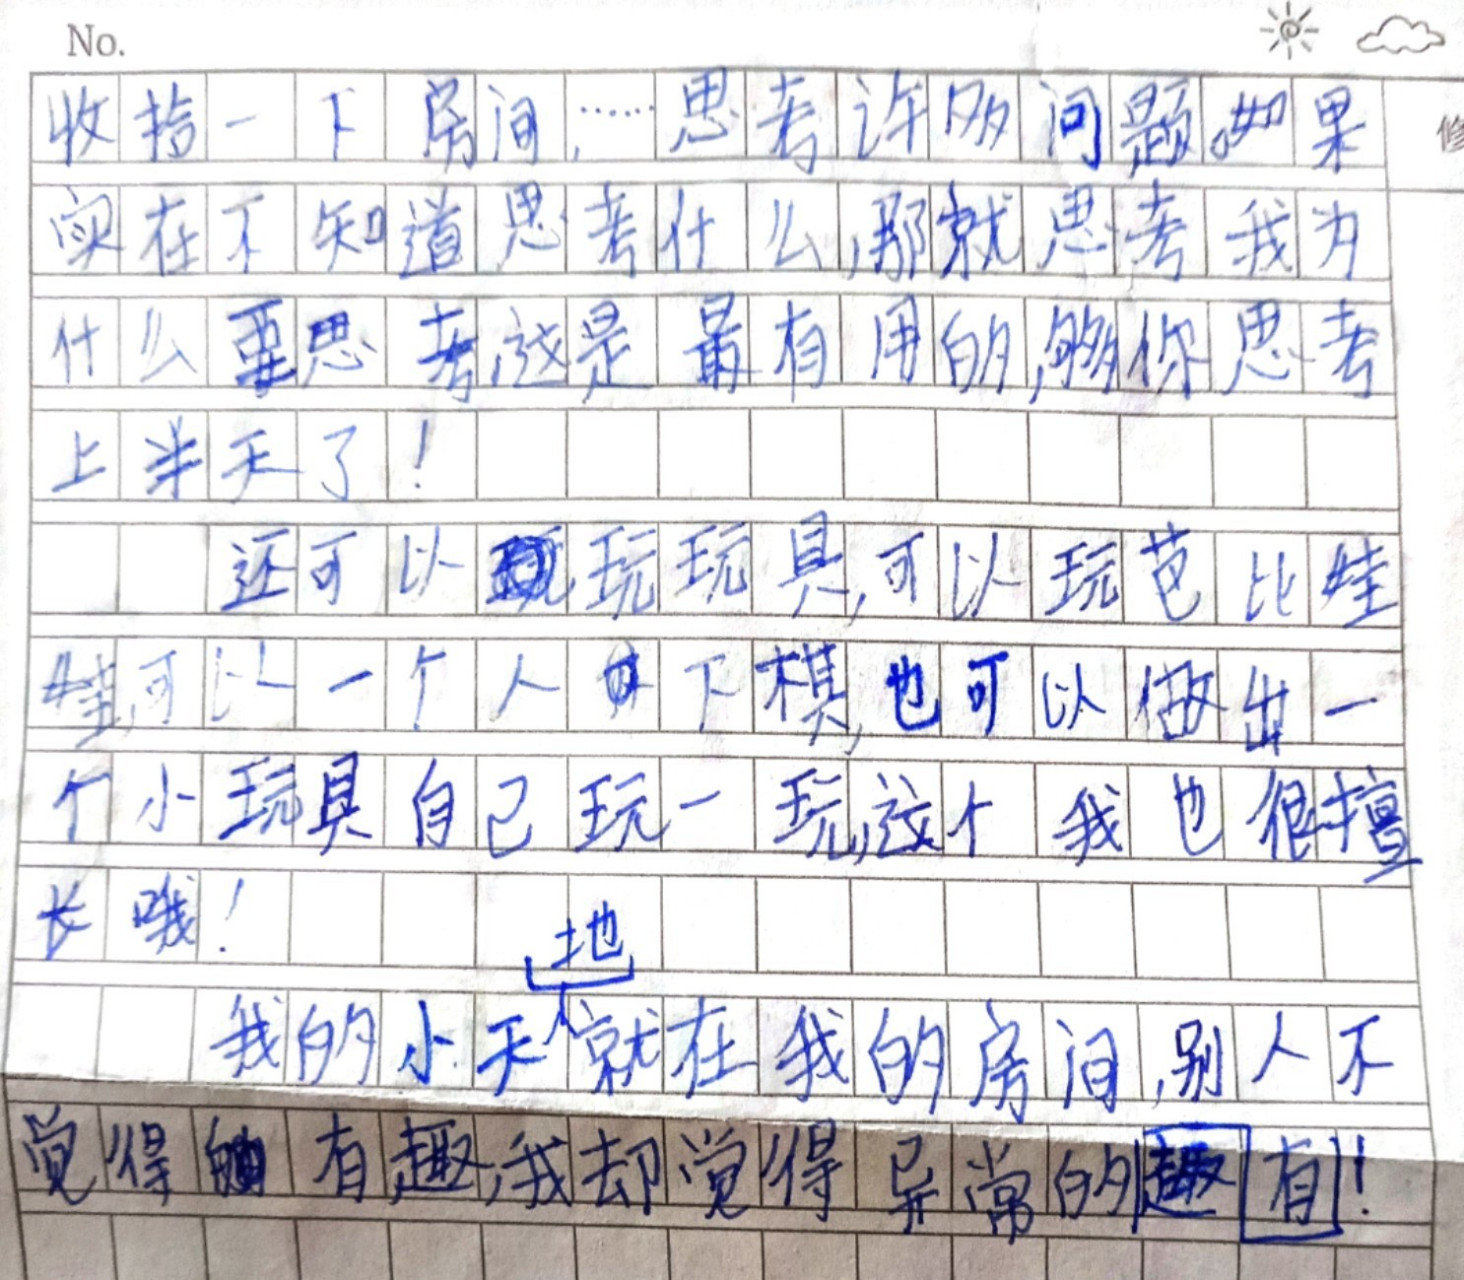 No.
收拾一下房间,……思考许多问题。如果
修
实在不知道思考什么,那就思考我为
什么要思考,这是最有用的,够你思考
上半天了!
还可以玩玩具,可以玩芭比娃
娃,可以一个人下棋,也可以做出一
个小玩具自己玩一玩,这个我也很擅
长哦!
地
我的小天就在我的房间,别人不
觉得有趣,我却觉得异常的趣有!